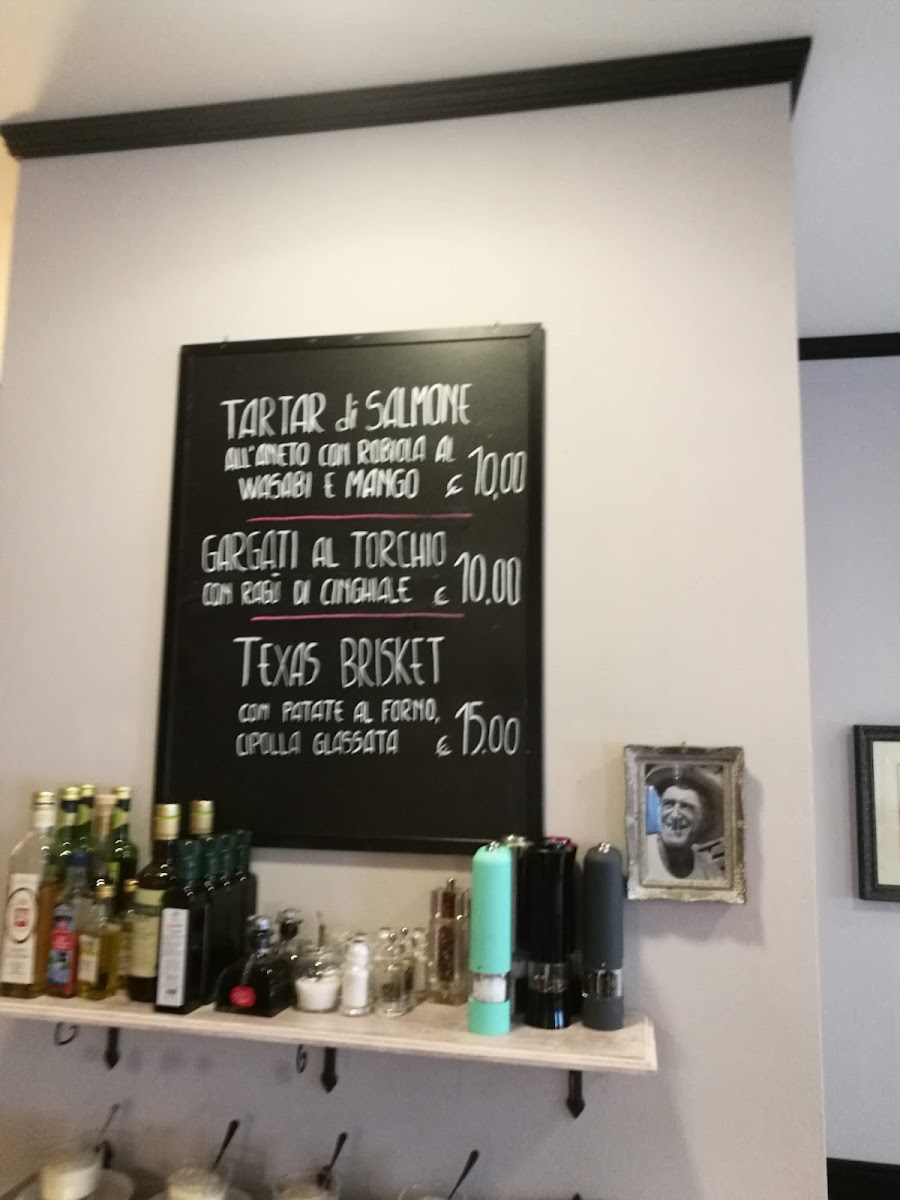 TARTAR di SALMONE
ALL'ANETO CON ROBIOLA AL
WASABI E MANGO € 10,00
GARGATI AL TORCHIO
CON RAGÙ DI CINGHIALE € 10.00
TEXAS BRISKET
CON PATATE AL FORNO,
CIPOLLA GLASSATA € 15.00